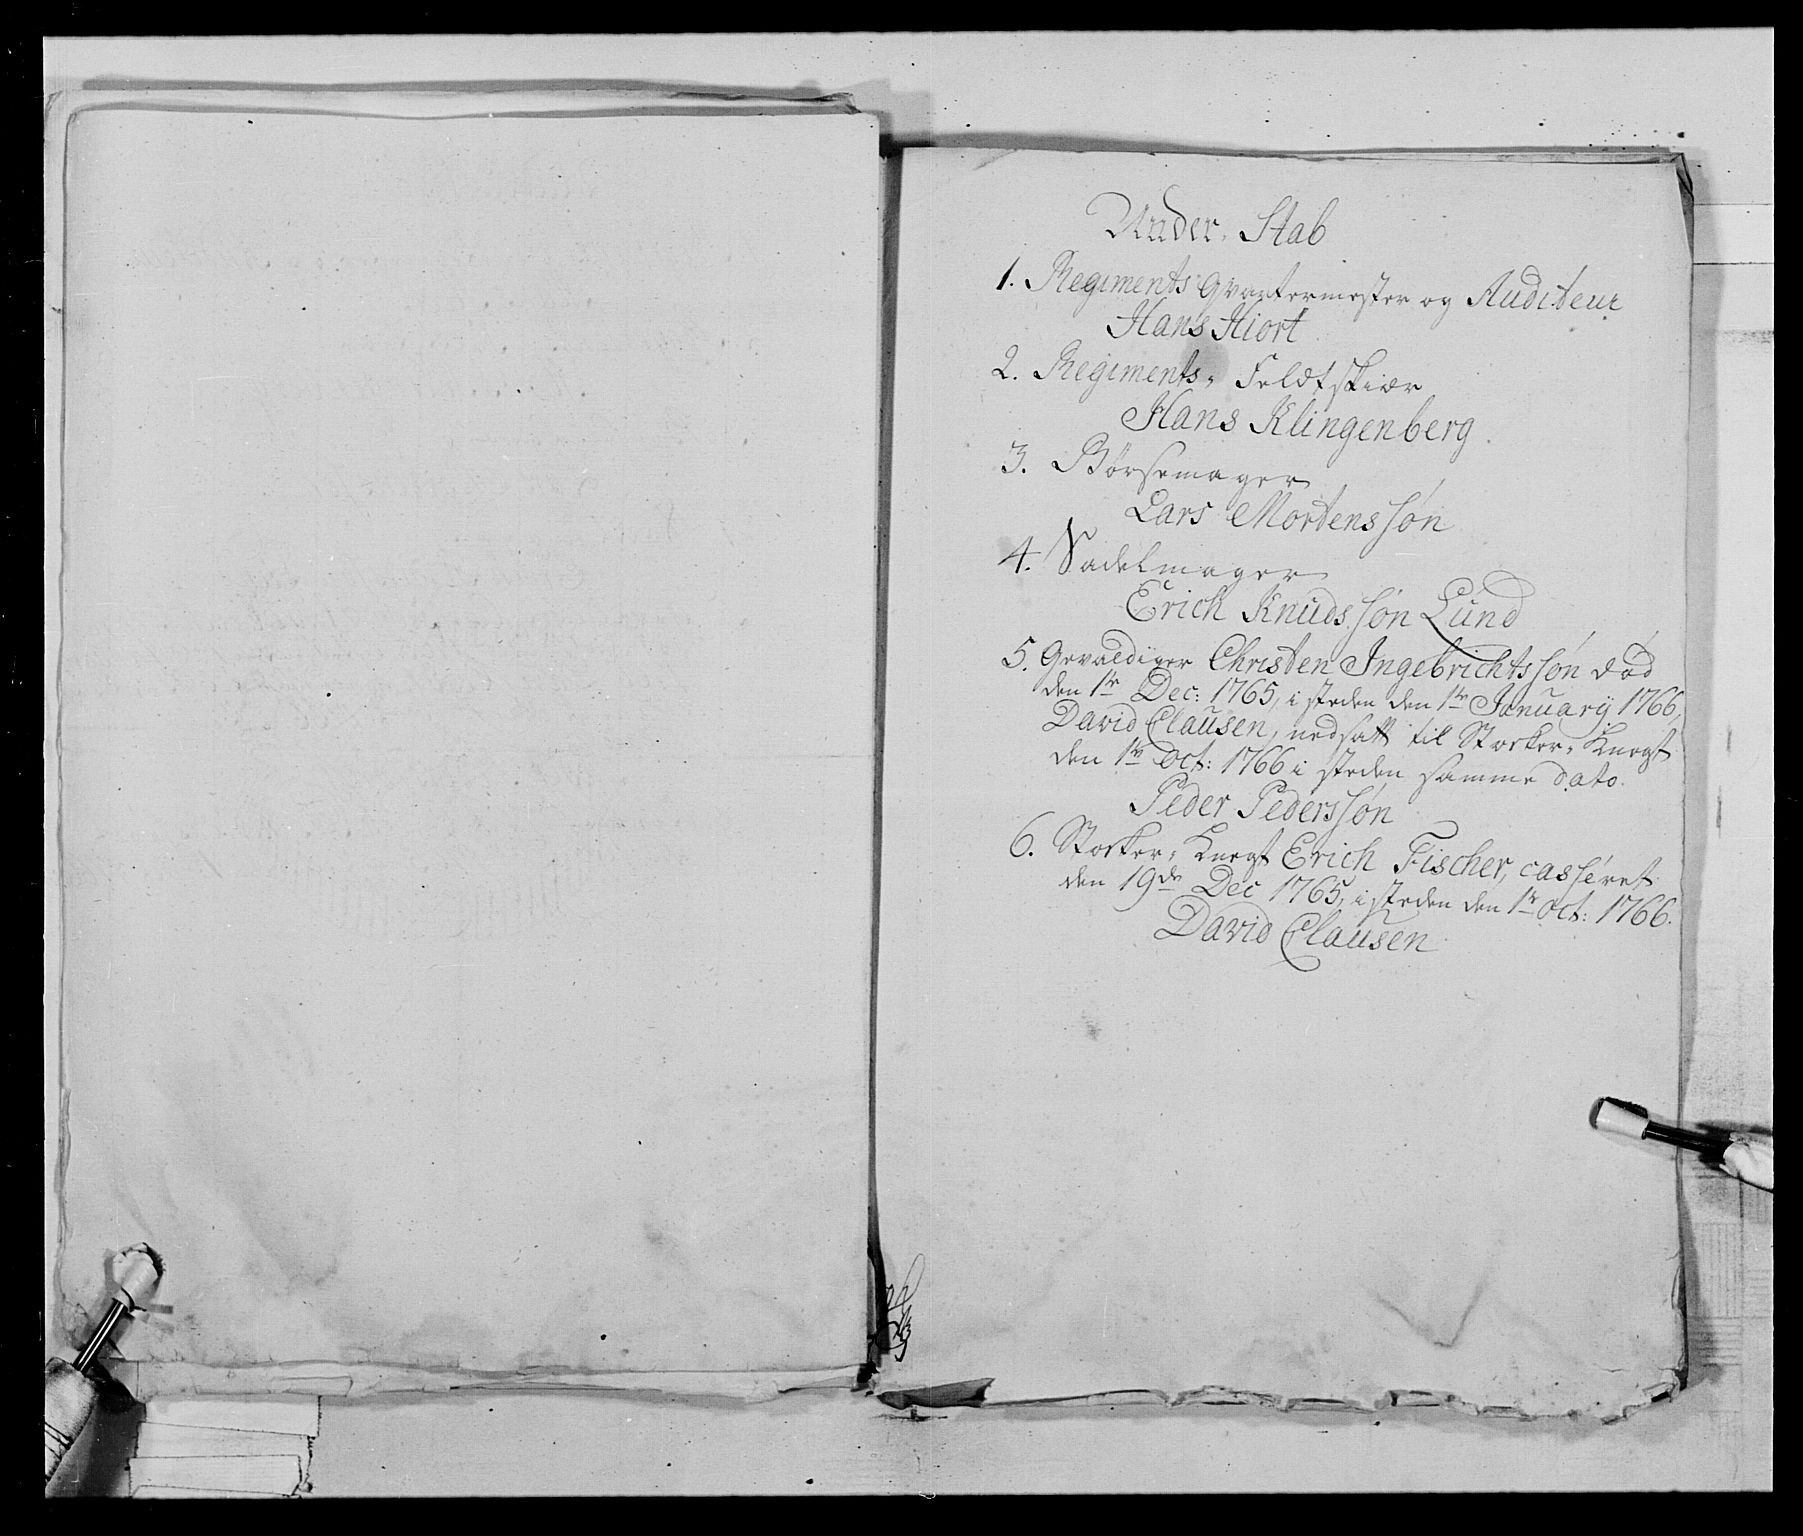 Under-Stab
1. Regiments Qvartermester og Auditeur
Hans Hiort
2. Regiments- Feldtskiær
Hans Klingenberg.
3. Børsemager
Lars Mortenssøn
4. Sadelmager
Erich Knudssøn Lund
5. Gevaldiger Christen Ingebrichtssøn død
den 1te Dec: 1765, i steden den 1te January 1766,
David Clausen, nedsatt til Stocker-Knegt
den 1te Oct: 1766 i steden samme dato.
Peder Pederssøn
6. Stocker-Knegt Erich Fischer, casseret
den 19de Dec 1765, i steden den 1te Oct: 1766.
David Clausen